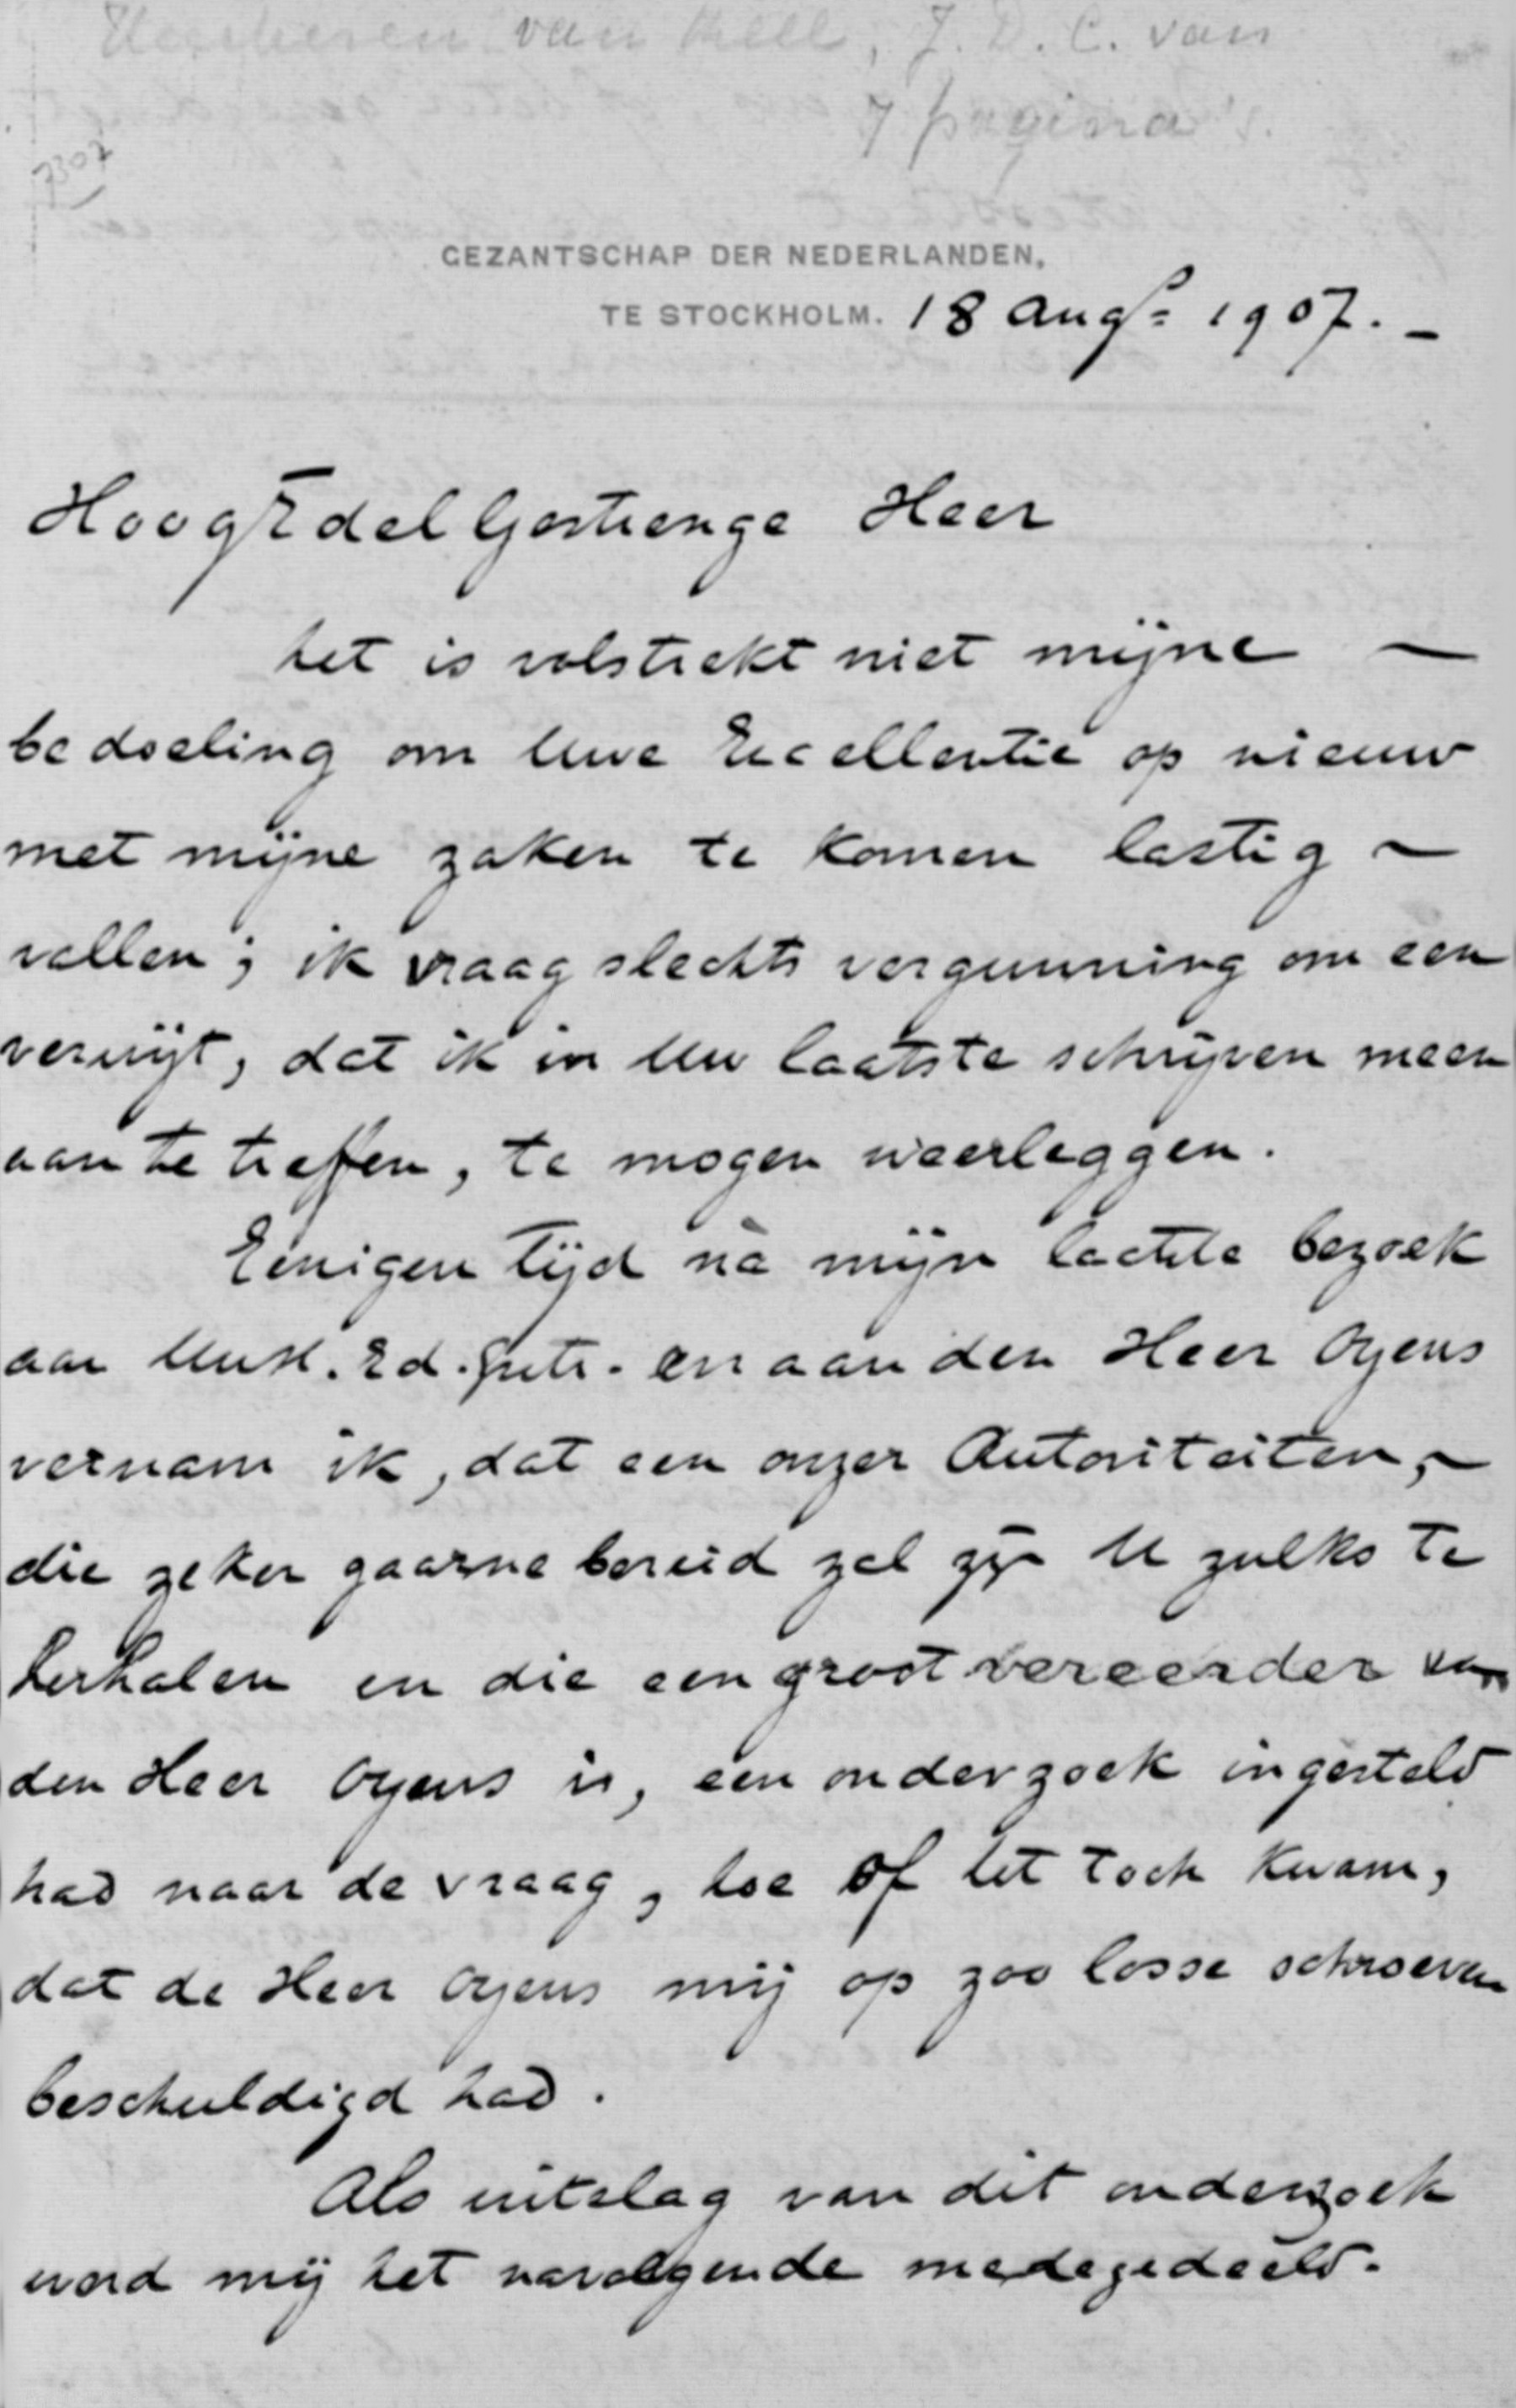 van Dell, J. D. C. van
7 pagina's.
7307
GEZANTSCHAP DER NEDERLANDEN,
TE STOCKHOLM. 18 Augs 1907. -
HoogEdelGestrenge Heer
het is volstrekt niet mijne —
bedoeling om Uwe Excellentie op nieuw
met mijne zaken te komen lastig -
vallen; ik vraag slechts vergunning om een
verwijt, dat ik in Uw laatste schrijven meen
aan te treffen, te mogen weerleggen.
Eenigen tijd nà mijn laatste bezoek
aan UwH.Ed.Gestr. en aan den Heer Oyens
vernam ik, dat een onzer Autoriteiten, -
die zeker gaarne bereid zal zijn U zulks te
herhalen en die een groot vereerder van
den Heer Oyens is, een onderzoek ingesteld
had naar de vraag, hoe of het toch kwam,
dat de Heer Oyens mij op zoo losse schroeven
beschuldigd had.
Als uitslag van dit onderzoek
werd mij het navolgende medegedeeld.